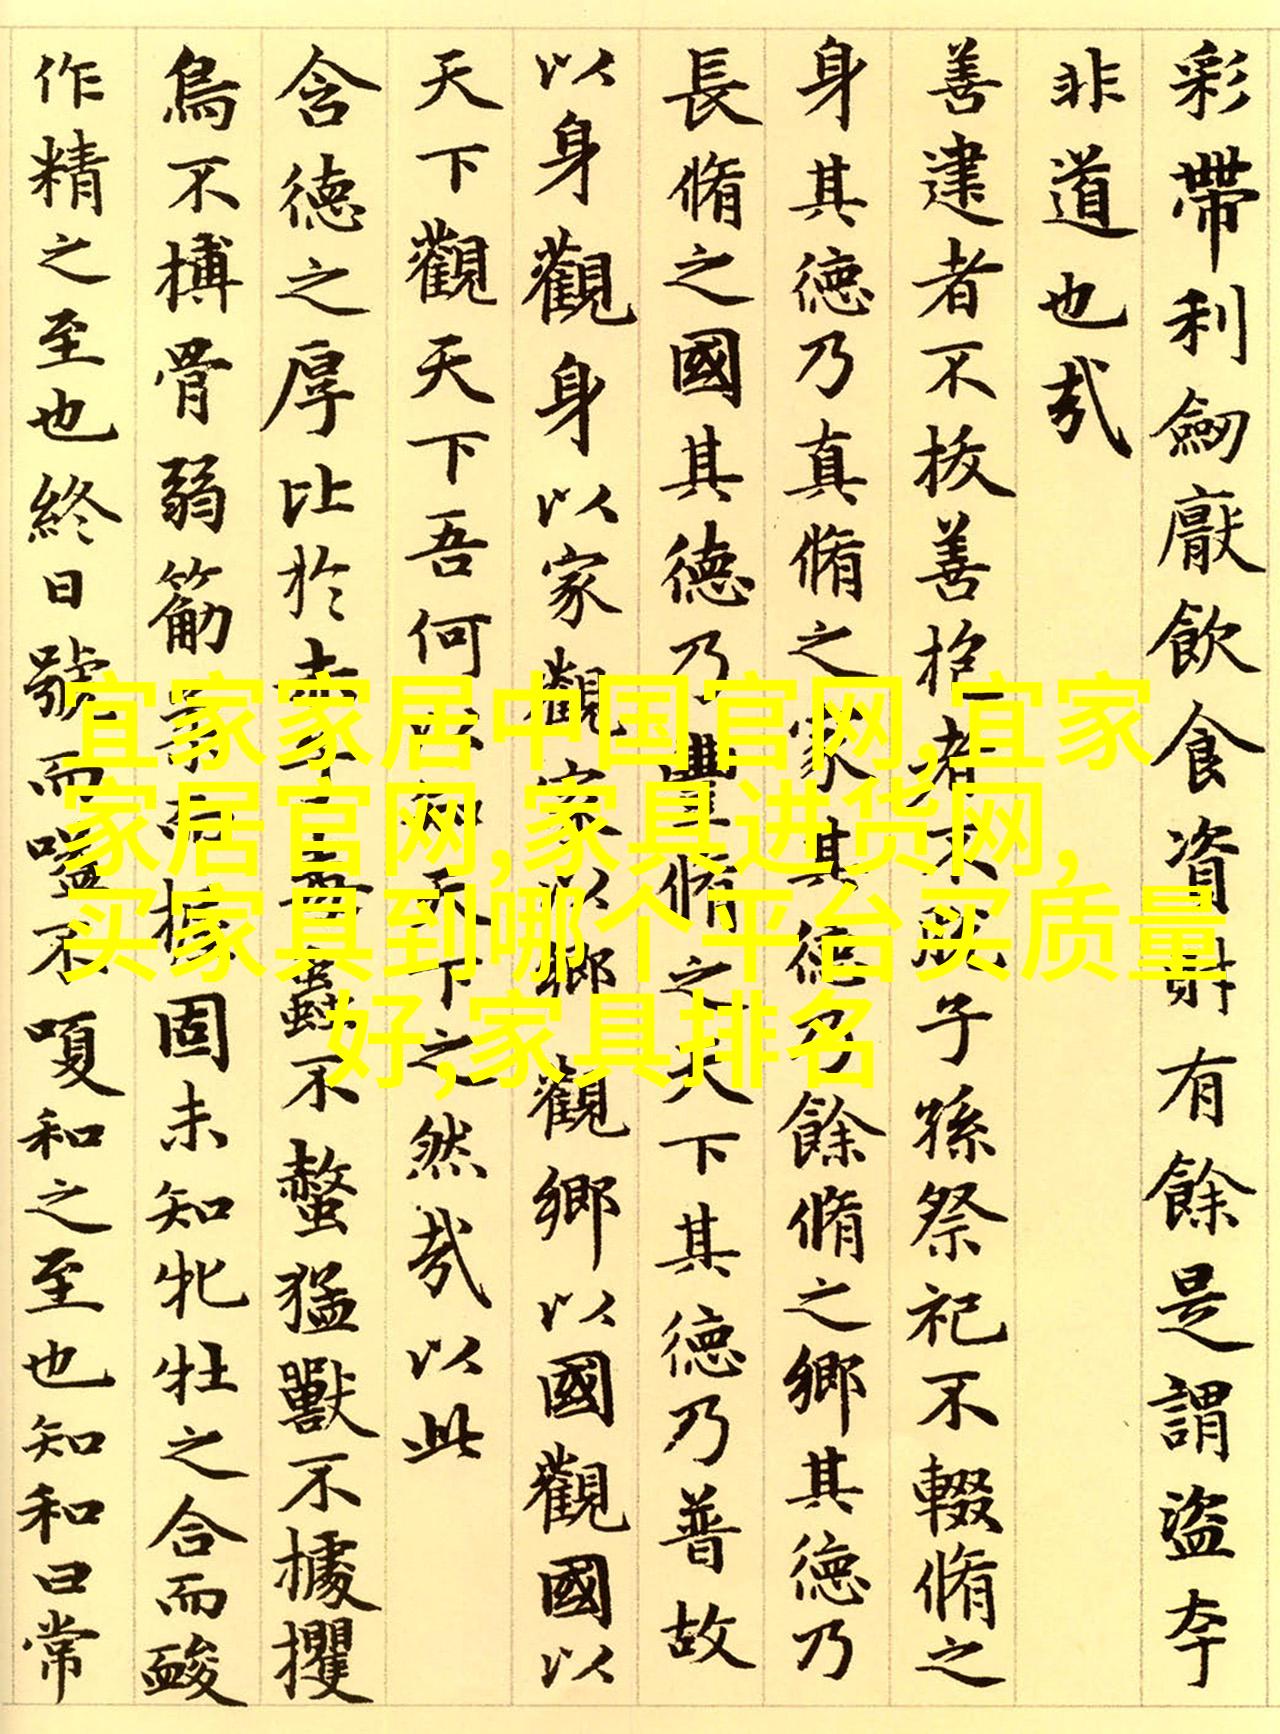 彩帶利劒厭飲食資財有餘是謂盜夸
非道也㢤
善建者不拔善抱者不脫子孫祭祀不輟脩之
身其德乃真脩之家其德乃餘脩之鄉其德乃
長脩之國其德乃豐脩之天下其德乃普故
以身觀身以家觀家以鄉觀鄉以國觀國以
天下觀天下吾何以知天下之然㢤以此
含德之厚比於赤子毒蟲不螫猛獸不據攫
鳥不搏骨弱筋柔而握固未知牝牡之合而䘒
作精之至也終日號而嗌不嗄和之至也知和曰常
宜家家居中国官网,宜家
家居官网,家具进货网,
买家具到哪个平台买质量
好,家具排名